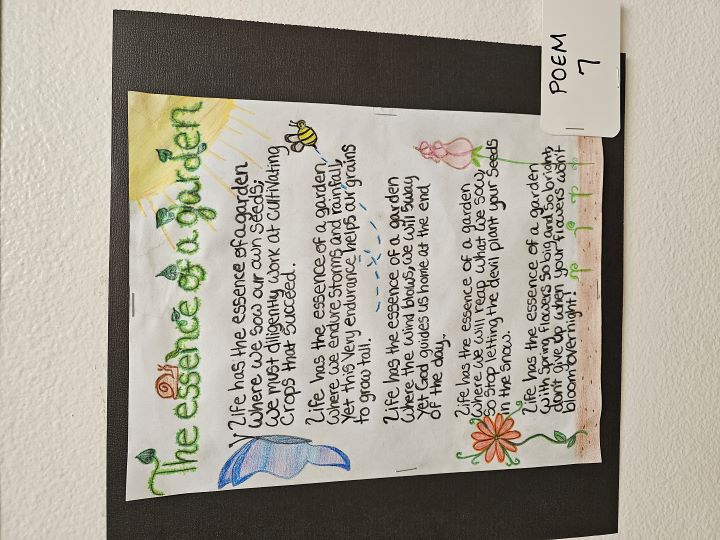 POEM
7
The essence of a garden
Life has the essence of a garden
Where we sow our own seeds;
We must diligently work at cultivating
Crops that succeed.
Life has the essence of a garden
Where we endure storms and rainfall,
Yet this very endurance helps our grains
to grow tall.
Life has the essence of a garden
Where the wind blows, we will sway
Yet God guides us home at the end
of the day.
Life has the essence of a garden
Where we will reap what we sow,
So stop letting the devil plant your seeds
in the snow.
Life has the essence of a garden
With spring flowers so big and so bright,
don't give up when your flowers won't
bloom overnight!